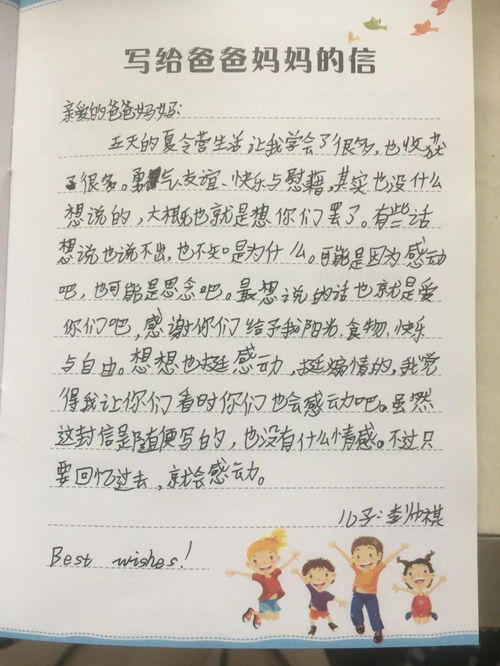 写给爸爸妈妈的信
亲爱的爸爸妈妈:
五天的夏令营生活让我学会了很多,也收获
了很多。勇气、友谊、快乐与慰藉,其实也没什么
想说的,大概也就是想你们罢了。有些话
想说也说不出,也不知是为什么。可能是因为感动
吧,也可能是思念吧。最想说的话也就是爱
你们吧,感谢你们给予我阳光、食物、快乐
与自由。想想也挺感动,挺煽情的,我觉
得我让你们看时你们也会感动吧。虽然
这封信是随便写的,也没有什么情感。不过只
要回忆过去,就会感动。
儿子:李帅祺
Best wishes!